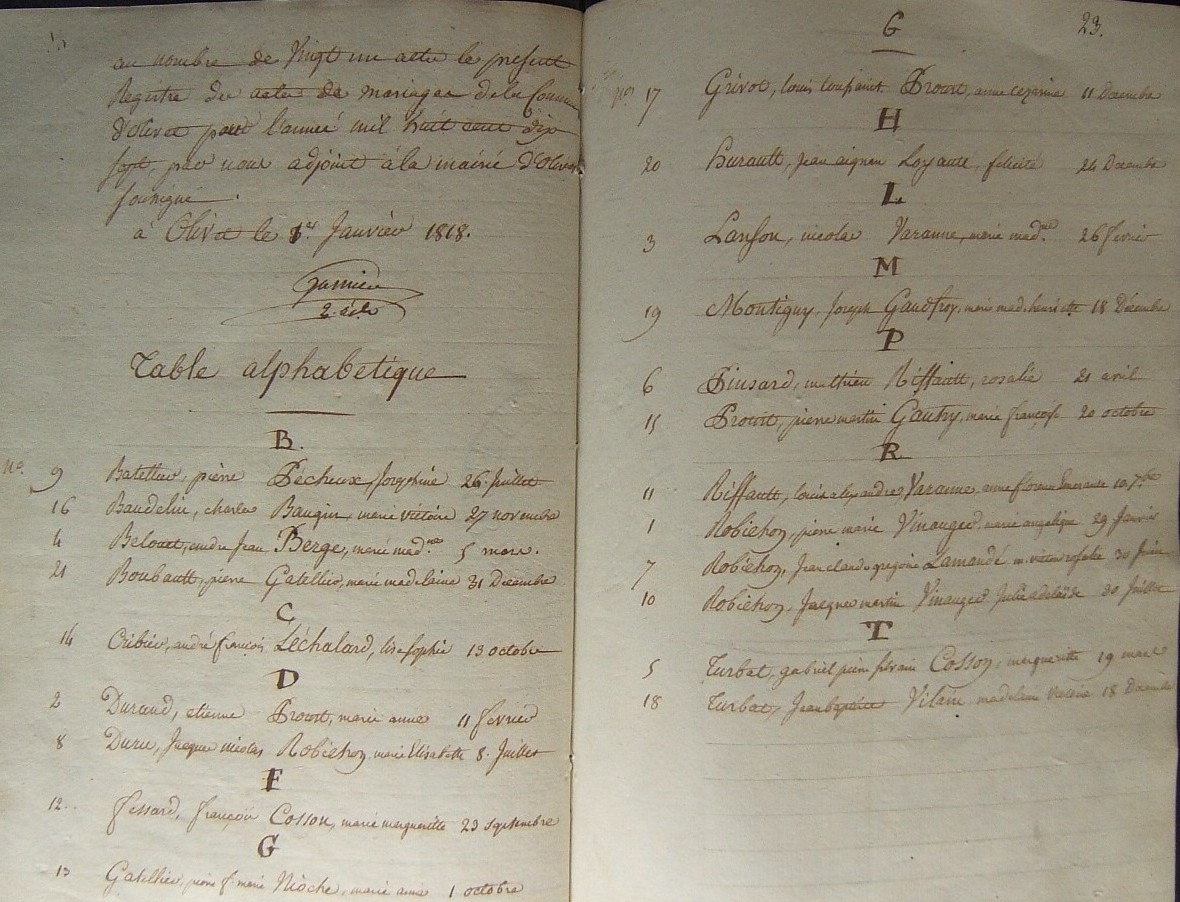 au nombre de Vingt un actes le present
Registre des actes de mariages de la Commune
d'olivet pour l'année mil huit cent dix
sept, par nous adjoint à la mairie d'Olivet
soussigné.
à Olivet le 1er Janvier 1818.
Table alphabetique
B.
no. 9 Batellier, pierre Pécheux, Josephine 26 Juillet
16 Baudelin, charles Baugin, marie victoire 27 novembre
4 Belouet, andre Jean Berge, marie mad.ne 5 mars.
21 Boubault, pierre Gatellier, marie madelaine 31 Décembre
C
14 Cribier, andré françois Léchalard, lise sophie 13 octobre
D
2 Durand, etienne Proust, marie anne 11 fevrier
8 Duru, Jacques nicolas Robichon, marie Elisabette 8 Juillet
F
12 fessard, françois Cosson, marie marguerite 23 Septembre
G
13 Gatellier, pierre f. marie Nioche, marie anne 1 octobre
G 23.
no 17 Grivot, louis toussaint Proust, anne cezarine 11 Décembre
H
20 Hurault, jean aignan Loyault, felicité 24 Décembre
L
3 Lanson, nicolas Varanne, marie mad.ne 26 fevrier
M
19 Montigny, Joseph Gaudfroy, marie mad. henriette 18 Décembre
P
6 Pinsard, mathieu Riffault, rosalie 21 avril
15 Proust, pierre martin Gautry, marie françoise 20 octobre
R
11 Riffault, louis alexandre Varanne, anne florence Emerante 10 7.bre
1 Robichon, pierre marie Vinauger, marie angelique 29 Janvier
7 Robichon, Jean claude gregoire Lamandé m. victoire rosalie 30 Juin
10 Robichon, Jacques martin Vinauger Julie adelaïde 30 Juillet
T
5 Turbat, gabriel pierre silvain Cosson, marguerite 19 mars
18 Turbat, Jean baptiste Vilain, madelaine victoire 18 Décembre